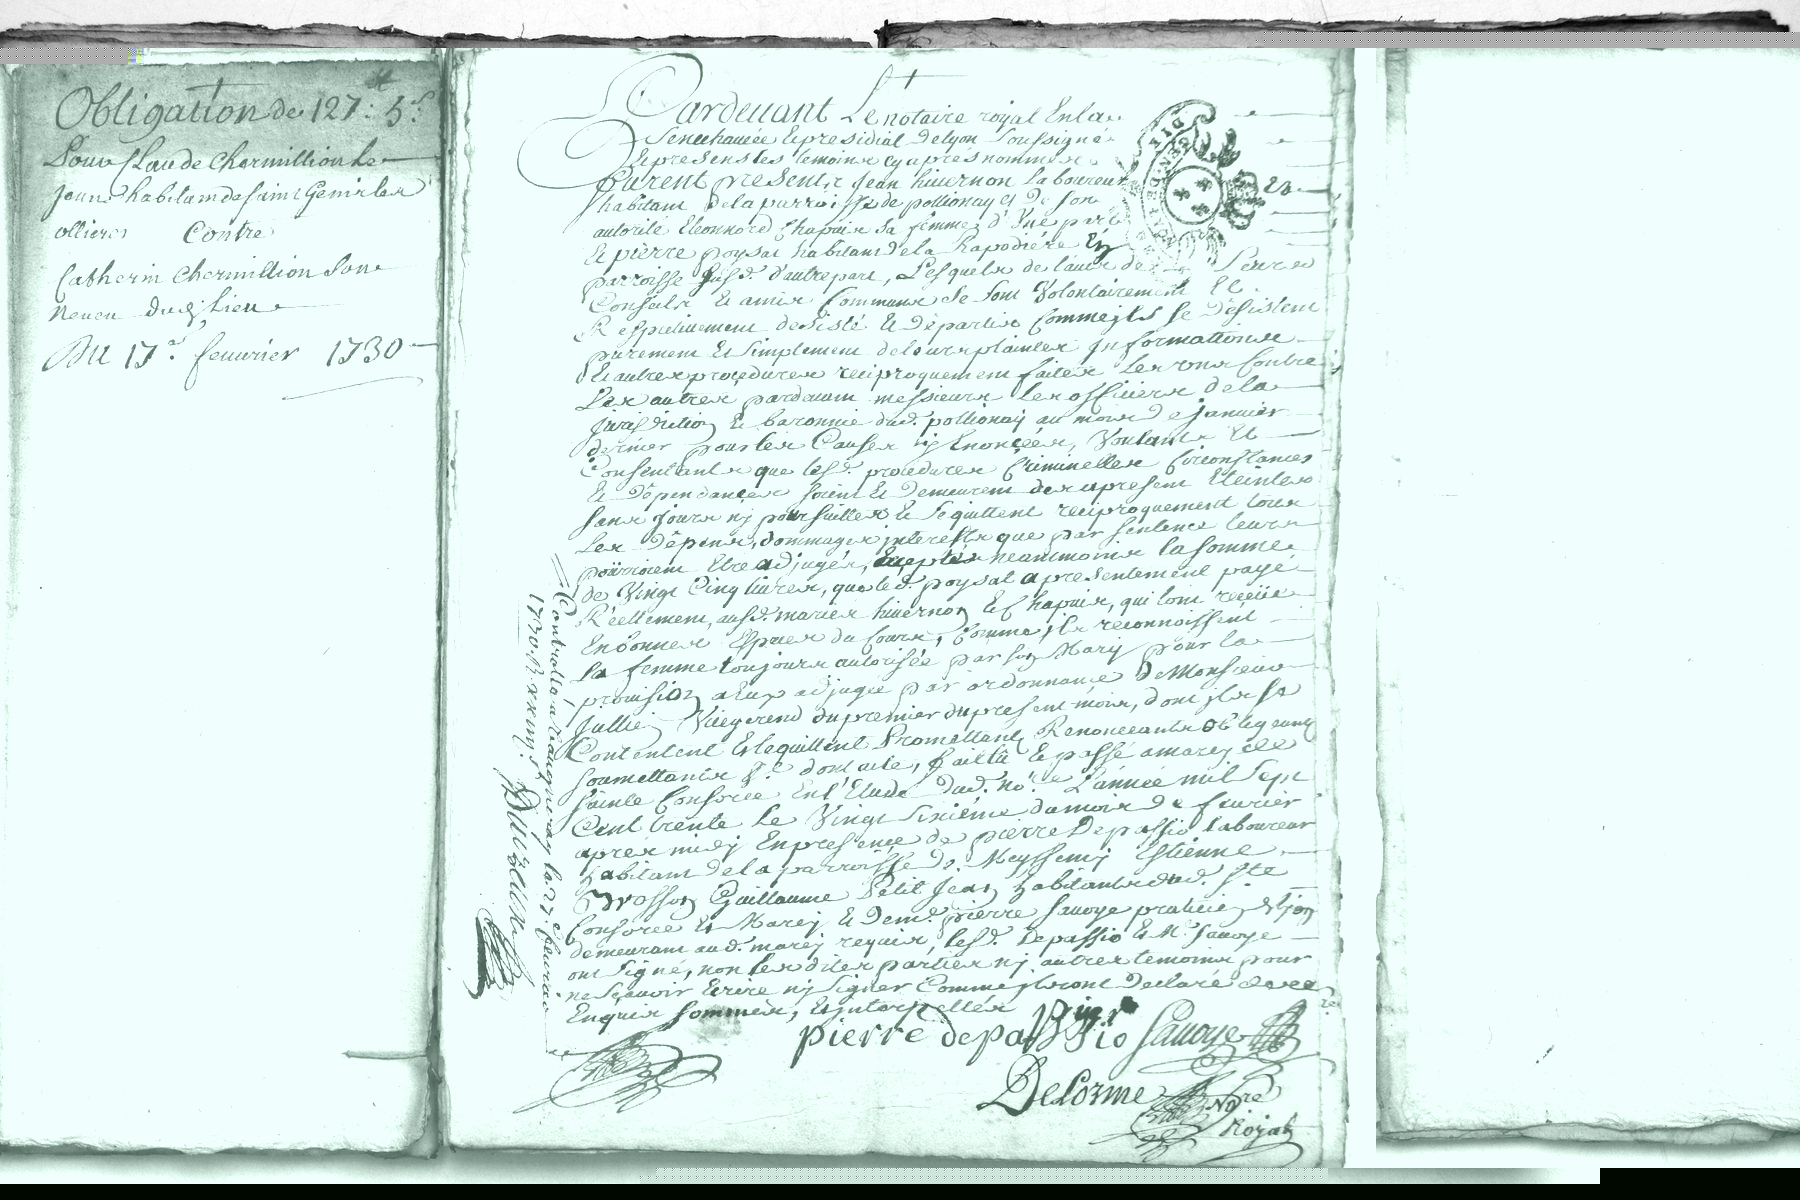 Obligation de 127ᵗᵗ: 5ˢ:
Pour Claude Chermillion Le
Jeune habitam de saint Genis les
ollieres Contre
Catherin Chermillion Son
neveu dud lieu
Du 17ᵉ. feuurier 1730
Pardeuant Le notaire royal En la
Senechaucée & presidial de lyon Soussigné
& presens les temoins cy apres nommés
furent presents Jean hiuernon laboureur
habitam de la parroisse de pollionay et de son
autorité Eleonnord Chapuis sa femme d'Vne part
Et pierre poysat habitam de la Chapodiére
parroisse Susd. d'autre part, Lesquels de l'auis de Leurs
Conseils & amis Communs se sont Volontairement Et
Respectiuement desisté & Départis Comme jls se Désistent
purement & simplement de leurs plaintes jnformations
& autres proçedures reciproquement faites Les vns Contre
Les autres pardeuant messieurs Les officiers de la
jurisdiction & baronnie dud. pollionay au mois de januier
dernier pour les Causes y Enoncées, Voulants Et
Consentants que lesd. procedures Criminelles Circonstances
& Dépendançes soient & Demeurent des apresent Eteintes
sans jours ny poursuittes & se quittent reciproquement tous
Les Dépens, dommages jnterests que par sentence leurs
pouroient Etre adjugés, neanmoins la somme
de Vingt Cinq liures, que led. poysat a presentement payé
Réellement, ausd. mariés hiuernon & Chapuis, qui l'ont reçeüe
En bonnes Espces du Cours, Comme jls reconnoissent
La femme toujours autorisée par son Mary pour la
prouision a Eux adjugée par ordonnance de Monsieur
Jullien Viçegerend du premier du present mois, dont jls se
Contentent & le quittent Promettants Renonceants Obligeants
soumettants &ᶜ dont acte, fait & passé a marcy de
sainte Consorce En l'Etude dud. noʳᵉ L'année mil sept
Cent trente Le Vingt sixiéme du mois de feurier
apres midy En presence de pierre Depassio laboureur
habitant de la parroisse de Meyssemy Estienne
Guillaume Petit Jean habitants dud. Sᵗᵉ
Consorce & Marcy & Demᵉ. pierre sauoye praticien
demeurant aud. marcy requis, Lesd. Depassio & Mᵉ. Sauoye
ont signé, non les dites parties ny autres temoins pour
ne sçauoir Ecrire ny signer Comme jls ont Declaré de ce
Enquis sommés, & jnterpellés
pierre depassio Sauoye
Delorme Noʳᵉ
Royal
Controllé a Vaugneray le 27ᵉ feurier
1730.